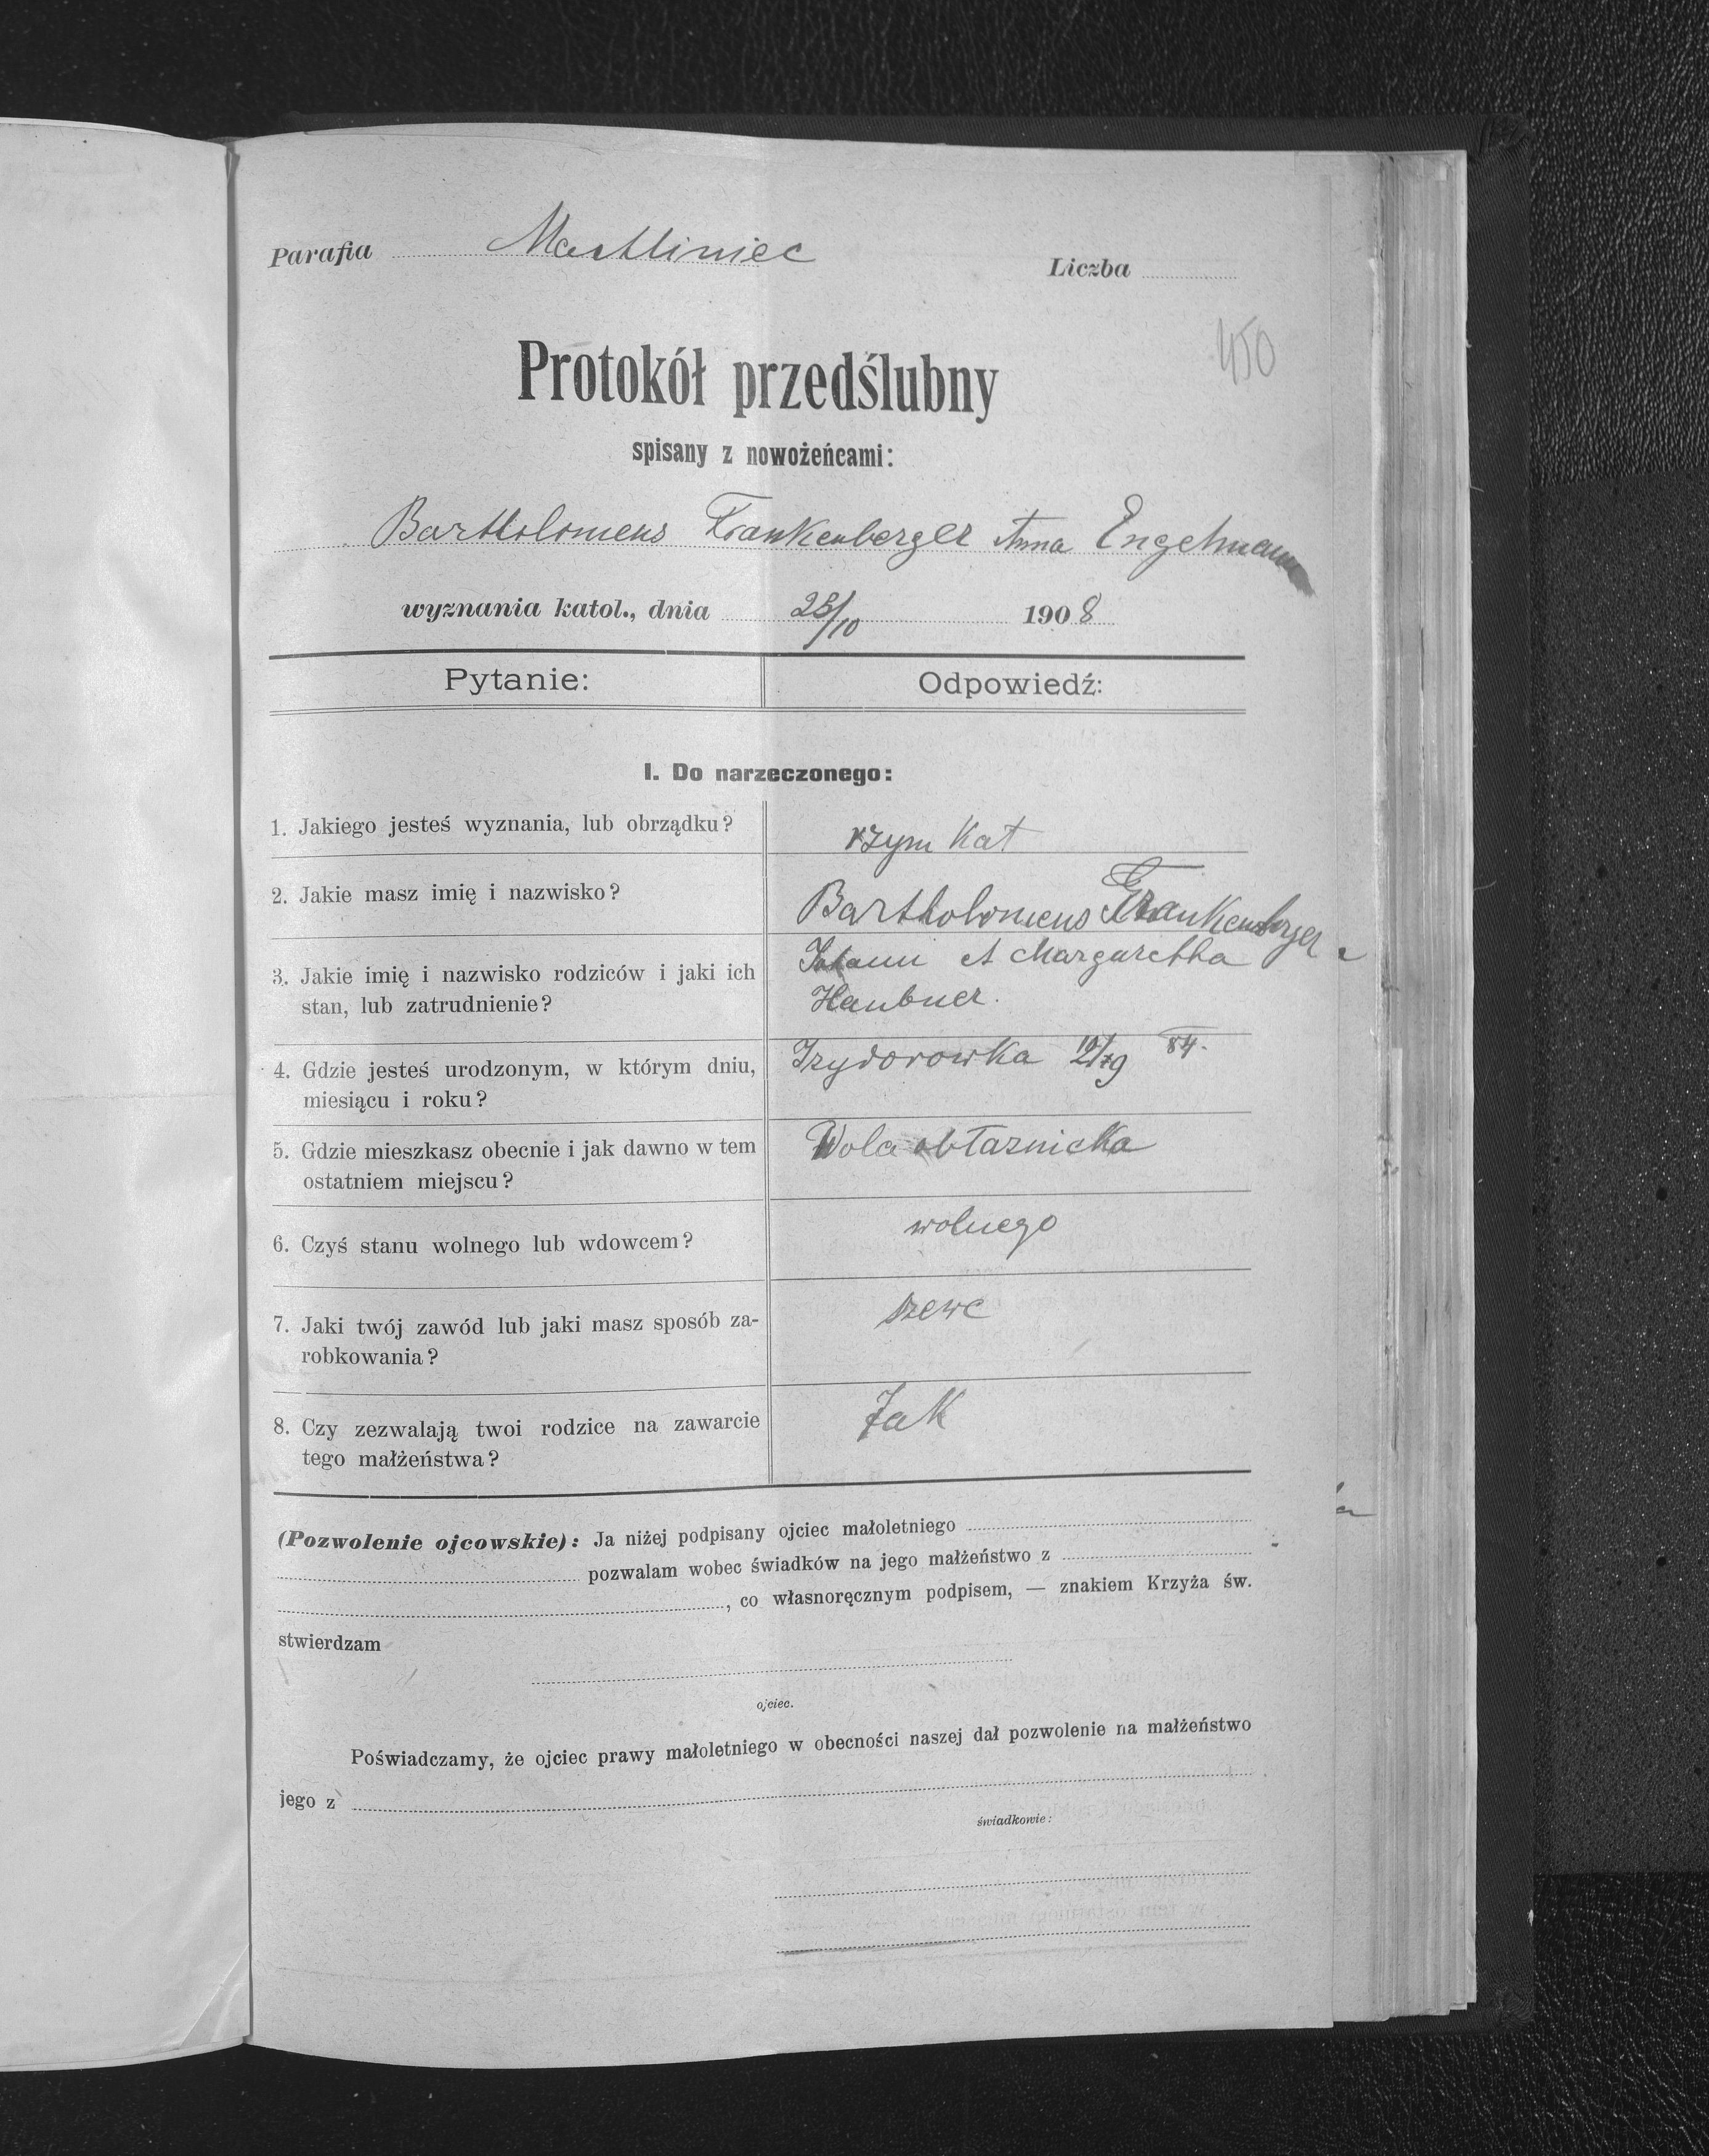 Parafia Machliniec
Liczba
450
Protokół przedślubny
spisany z nowożeńcami:
Bartholomeus Frankenberger Anna Engelmann
wyznania katol., dnia 25/10 1908
Pytanie: Odpowiedź:
I. Do narzeczonego:
1. Jakiego jesteś wyznania, lub obrządku? rzym Kat
2. Jakie masz imię i nazwisko? Bartholomeus Frankenberger
3. Jakie imię i nazwisko rodziców i jaki ich Johann et Margaretha
stan, lub zatrudnienie? Haubner.
4. Gdzie jesteś urodzonym, w którym dniu, Izydorowka 84.
miesiącu i roku?
5. Gdzie mieszkasz obecnie i jak dawno w tem Wola obłaznicka
ostatniem miejscu?
6. Czyś stanu wolnego lub wdowcem? wolnego
7. Jaki twój zawód lub jaki masz sposób za- szewc
robkowania?
8. Czy zezwalają twoi rodzice na zawarcie Tak
tego małżeństwa?
(Pozwolenie ojcowskie): Ja niżej podpisany ojciec małoletniego
pozwalam wobec świadków na jego małżeństwo z
, co własnoręcznym podpisem, — znakiem Krzyża św.
stwierdzam
ojciec.
Poświadczamy, że ojciec prawy małoletniego w obecności naszej dał pozwolenie na małżeństwo
jego z
świadkowie: